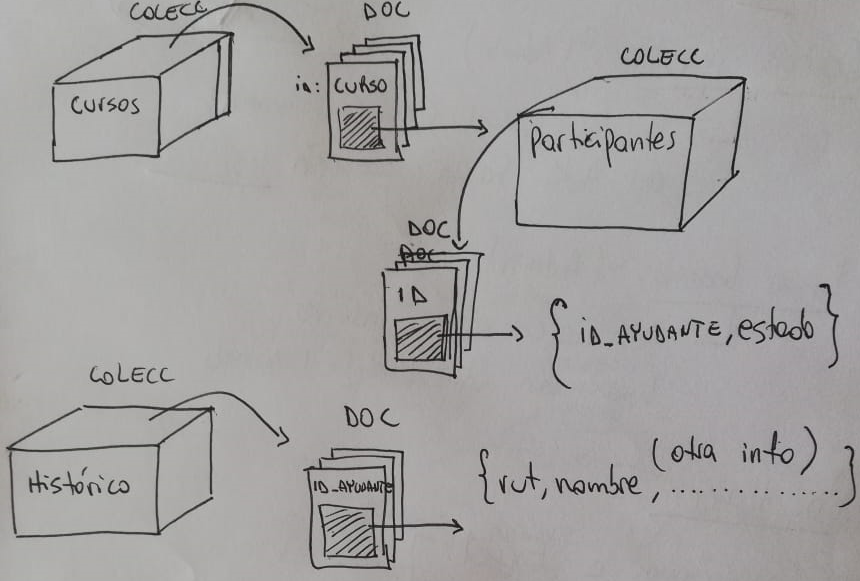 COLECC
DOC
CURSOS
in: CURSO
COLECC
Participantes
DOC
DOC
ID
{ iD_AYUDANTE, estado }
COLECC
Histórico
DOC
ID_AYUDANTE
(otra info)
{rut, nombre, ................}